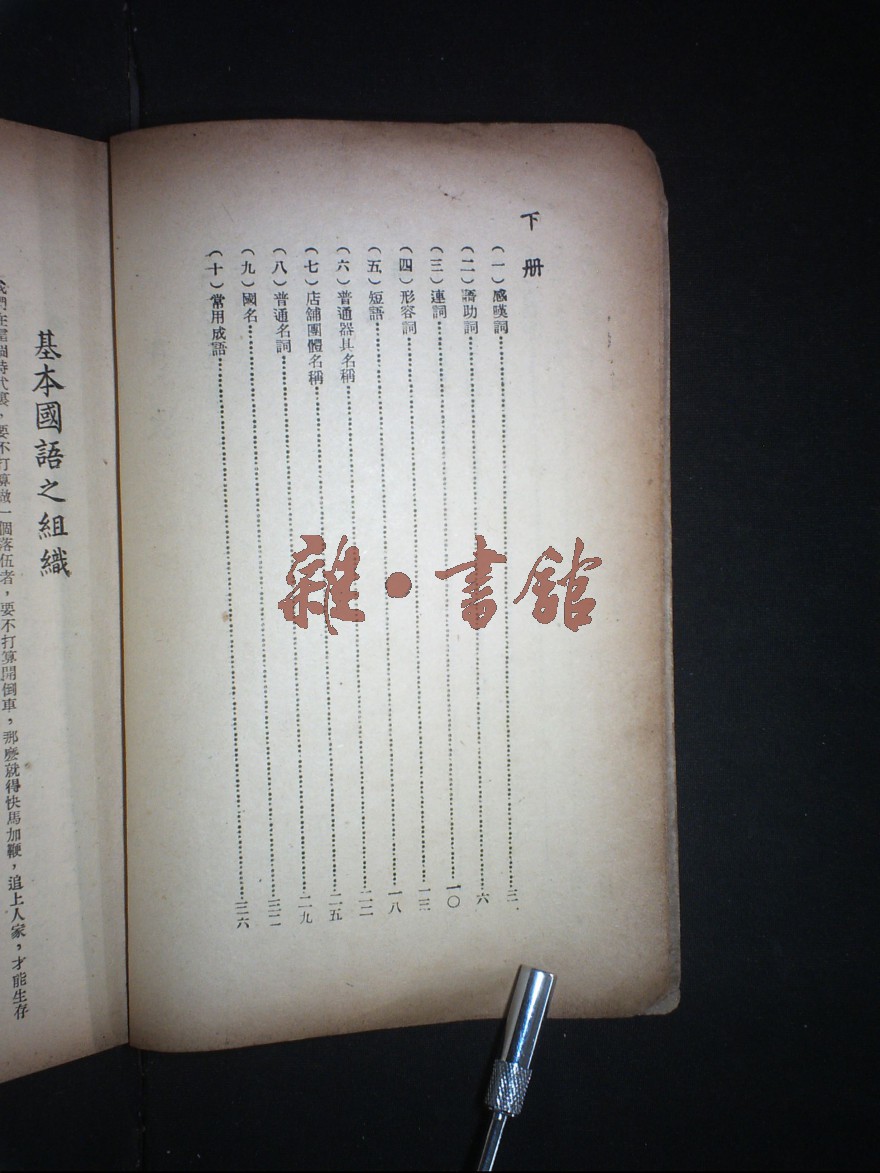 下册
(一)感嘆詞……三一
(二)語助詞……六
(三)連詞……一〇
(四)形容詞……一三
(五)短語……一八
(六)普通器具名稱……二二
(七)店舖團體名稱……二五
(八)普通名詞……二九
(九)國名……三二
(十)常用成語……三六
基本國語之組織
我們在這個時代裏,要不打算做一個落伍者,要不打算開倒車,那麽就得快馬加鞭,追上人家,才能生存
雜•書館